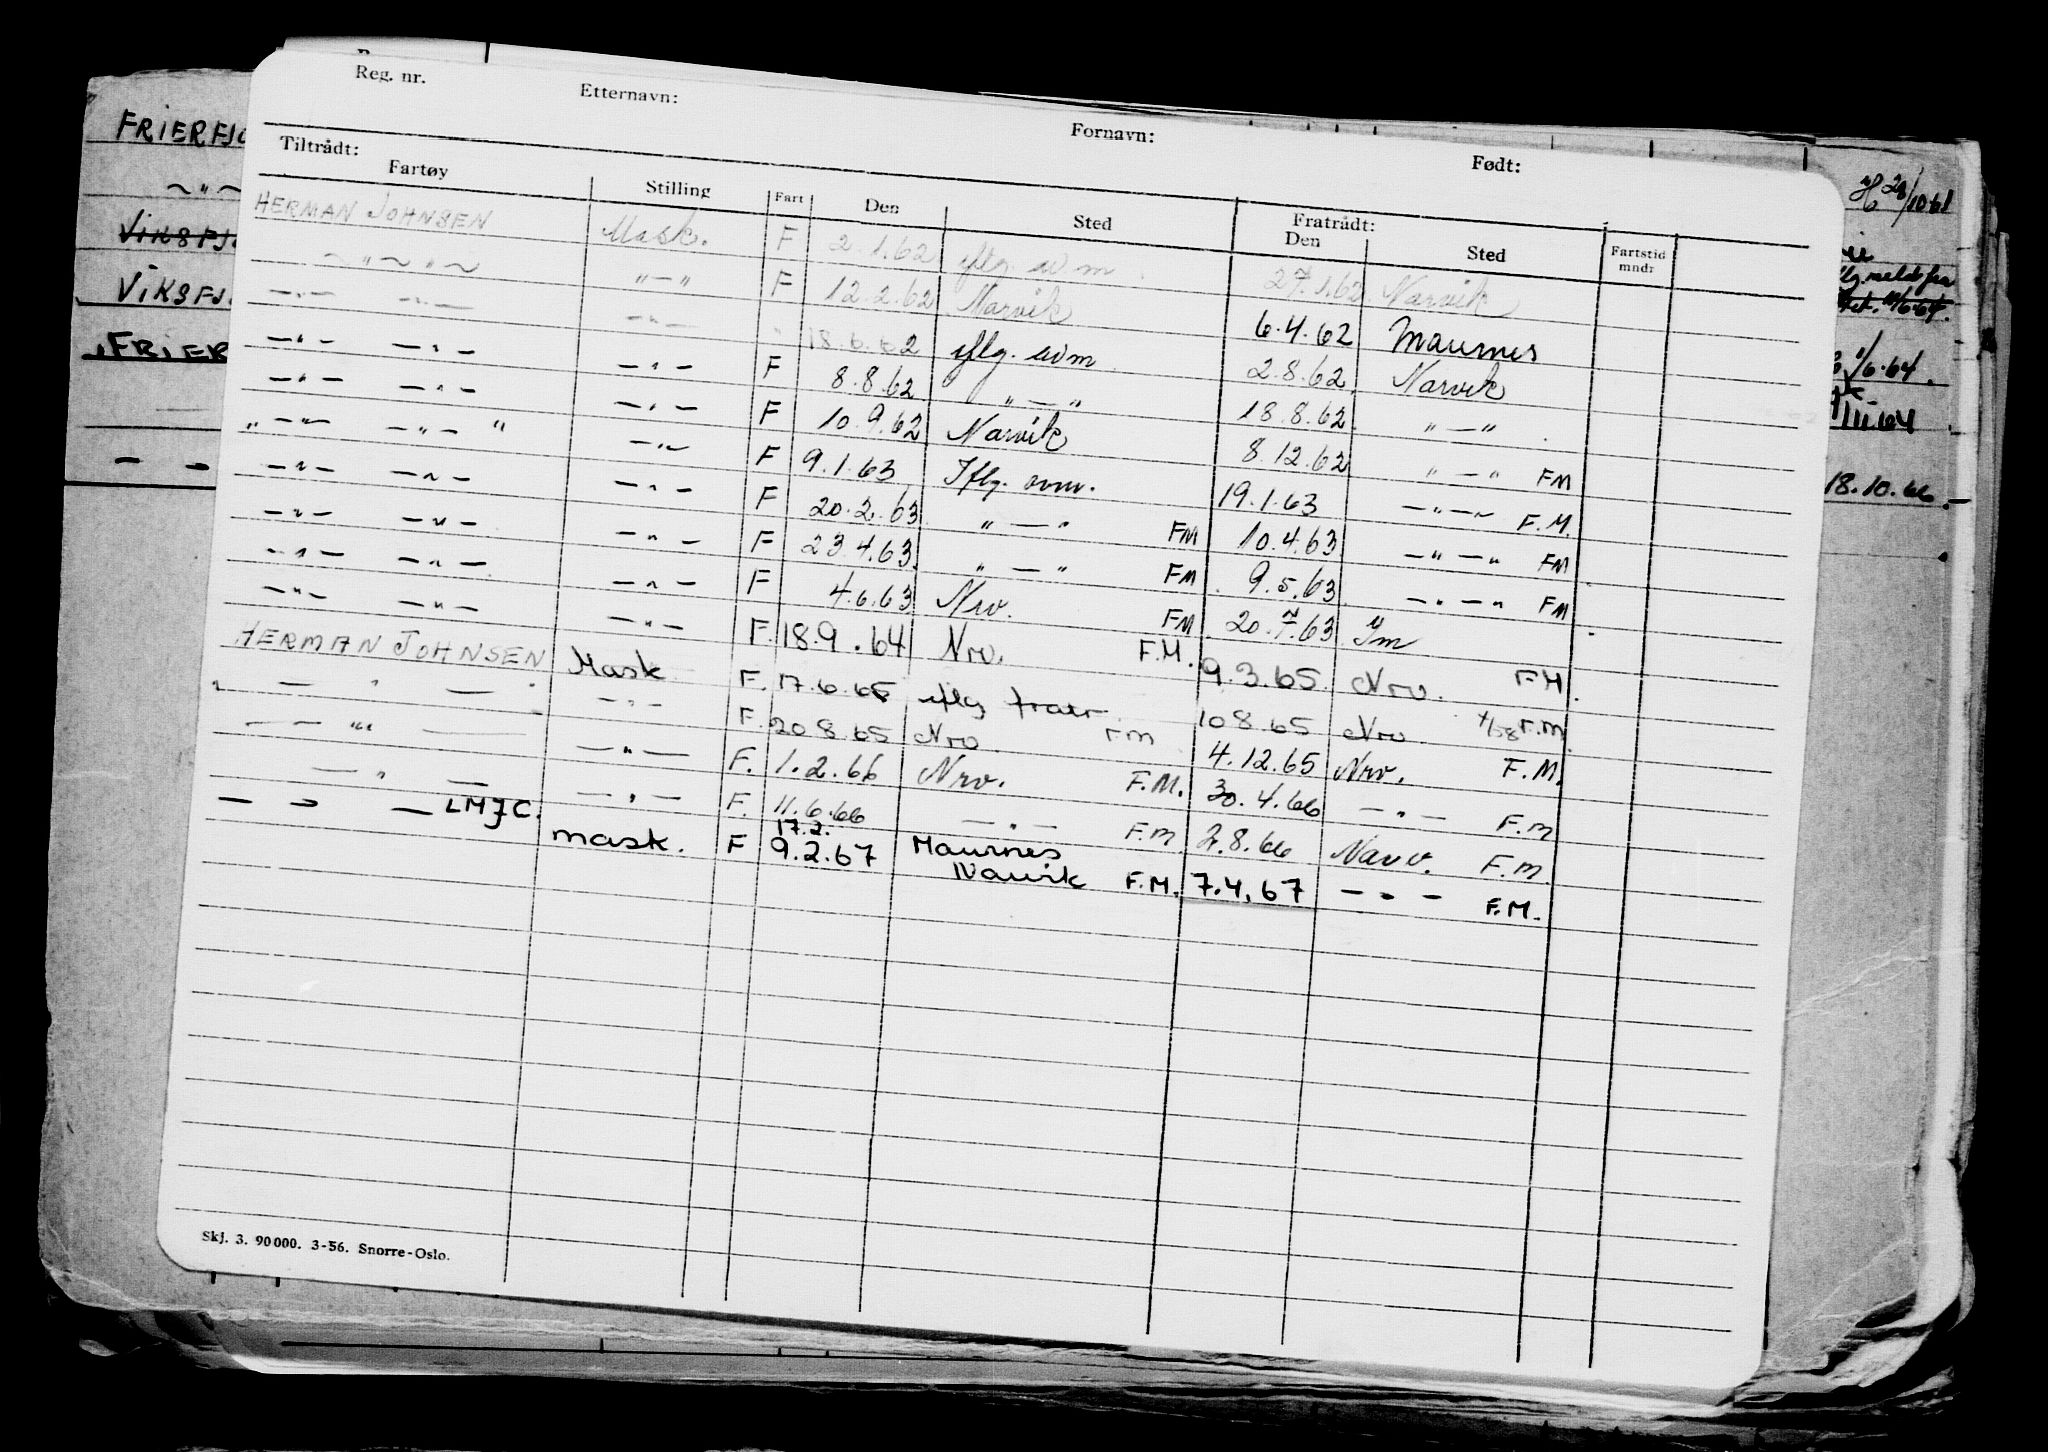 Reg. nr. Etternavn: Fornavn: Født:
Tiltrådt: Fratrådt:
Fartøy Stilling Fart Den Sted Den Sted Fartstid mndr
HERMAN JOHNSEN Mask. F 2.1.62 iflg. avm. 27.1.62 Narvik
~ " ~ " ~ " - " F 12.2.62 Narvik 6.4.62 Maurnes
- " - - " - - " - 18.6.62 iflg. avm. 2.8.62 Narvik
- " - - " - - " - F 8.8.62 " - " 18.8.62 " - "
- " - - " - - " - F 10.9.62 Narvik 8.12.62 " - " FM
" - " - - " - " - " - F 9.1.63 Iflg. avm. 19.1.63 - " - " F.M.
- " - - " - - " - F 20.2.63 " - " FM 10.4.63 - " - " FM
- " - - " - - " - F 23.4.63 " - " FM 9.5.63 - " - " FM
- " - - " - - " - F 4.6.63 Nrv. FM 20.7.63 Ym
- " - - " - - " - F. 18.9.64 Nrv. F.M. 9.3.65 Nrv. FM.
HERMAN JOHNSEN Mask F. 17.6.65 iflg fratr. 10 8.65 Nrv F.M.
" - " - " - " - F. 20 8.65 Nrv. FM 4.12.65 Nrv. F.M.
- - " " - - " - F. 1.2.66 Nrv. F.M. 30.4.66 - " - F.M
- " - - " - F. 11.6.66 - " - F.M 2.8.66 Narv. F.M.
- " - LMJC. mask. F 17.2.
9.2.67 Maurnes
Narvik F.M. 7.4.67 - " - F.M.
Skj. 3. 90 000. 3-56. Snorre-Oslo.
FRIERFJO
~ " ~
VIKSFJ.
VIKSFJ.
FRIER
- -
28/10 61
1/6.64.
18.10.66.